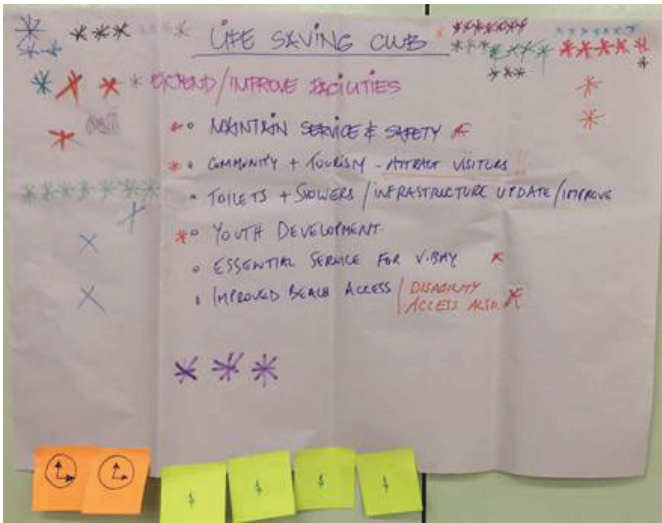 LIFE SAVING CLUB
EXTEND/IMPROVE FACILITIES
MAINTAIN SERVICE & SAFETY
COMMUNITY + TOURISM - ATTRACT VISITORS !!
TOILETS + SHOWERS / INFRASTRUCTURE UPDATE/IMPROVE
YOUTH DEVELOPMENT
ESSENTIAL SERVICE FOR V.BAY
IMPROVED BEACH ACCESS / DISABILITY
ACCESS ALSO.
$ $ $ $